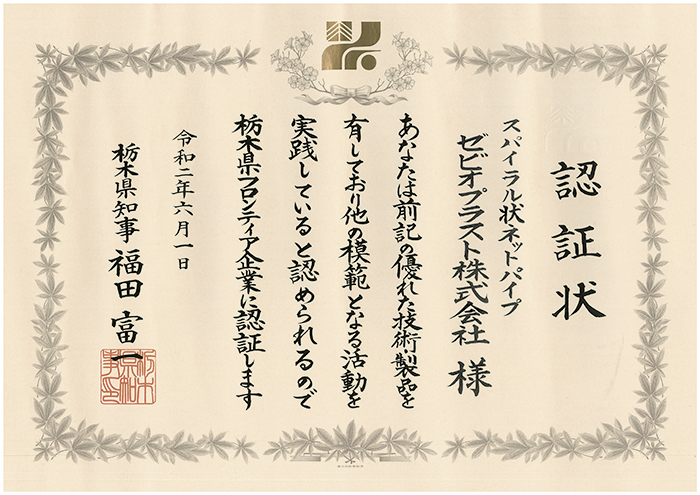 認証状
スパイラル状ネットパイプ
ゼビオプラスト株式会社 様
あなたは前記の優れた技術製品を
有しており他の模範となる活動を
実践していると認められるので
栃木県フロンティア企業に認証します
令和二年六月一日
栃木県知事 福田富一